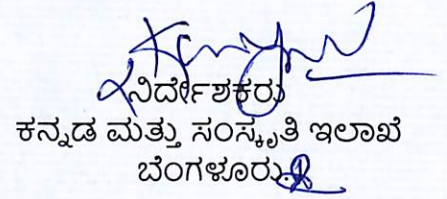 ನಿರ್ದೇಶಕರು
ಕನ್ನಡ ಮತ್ತು ಸಂಸ್ಕೃತಿ ಇಲಾಖೆ
ಬೆಂಗಳೂರು.